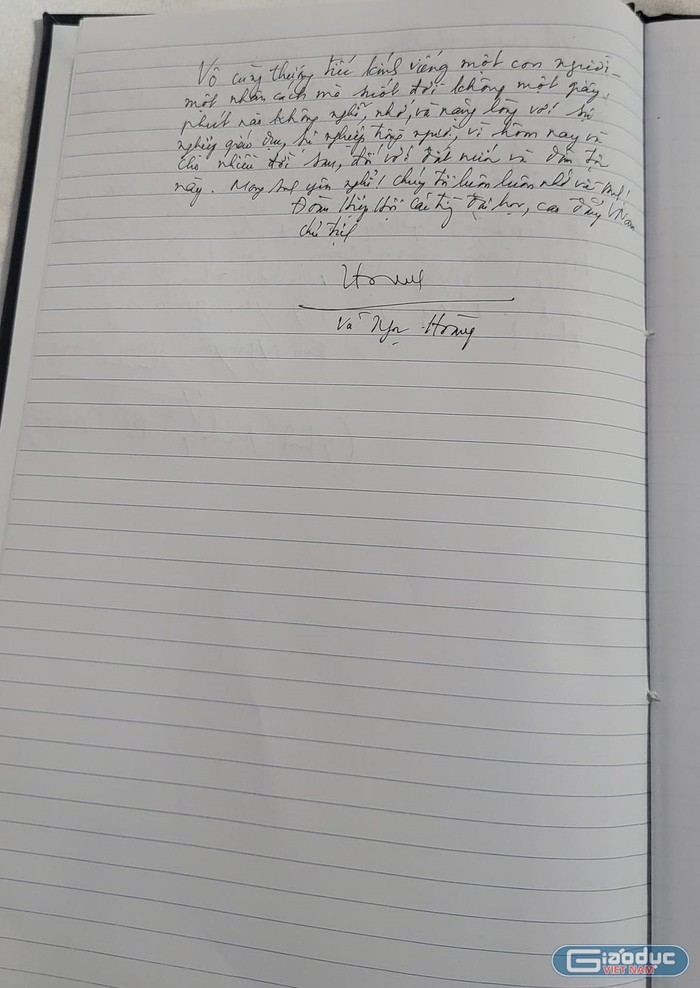 Vô cùng thương tiếc kính viếng một con người -
một nhân cách mà suốt đời không một giây
phút nào không nghĩ, nhớ, và nặng lòng với sự
nghiệp giáo dục, sự nghiệp trồng người, vì hôm nay và
cho nhiều đời sau, đối với đất nước và dân tộc
này. Mong anh yên nghỉ! Chúng tôi luôn luôn nhớ về anh!
Đoàn Hiệp Hội các trg đại học, cao đẳng VNam
chủ tịch
Vũ Ngọc Hoàng
Giáo dục
VIỆT NAM